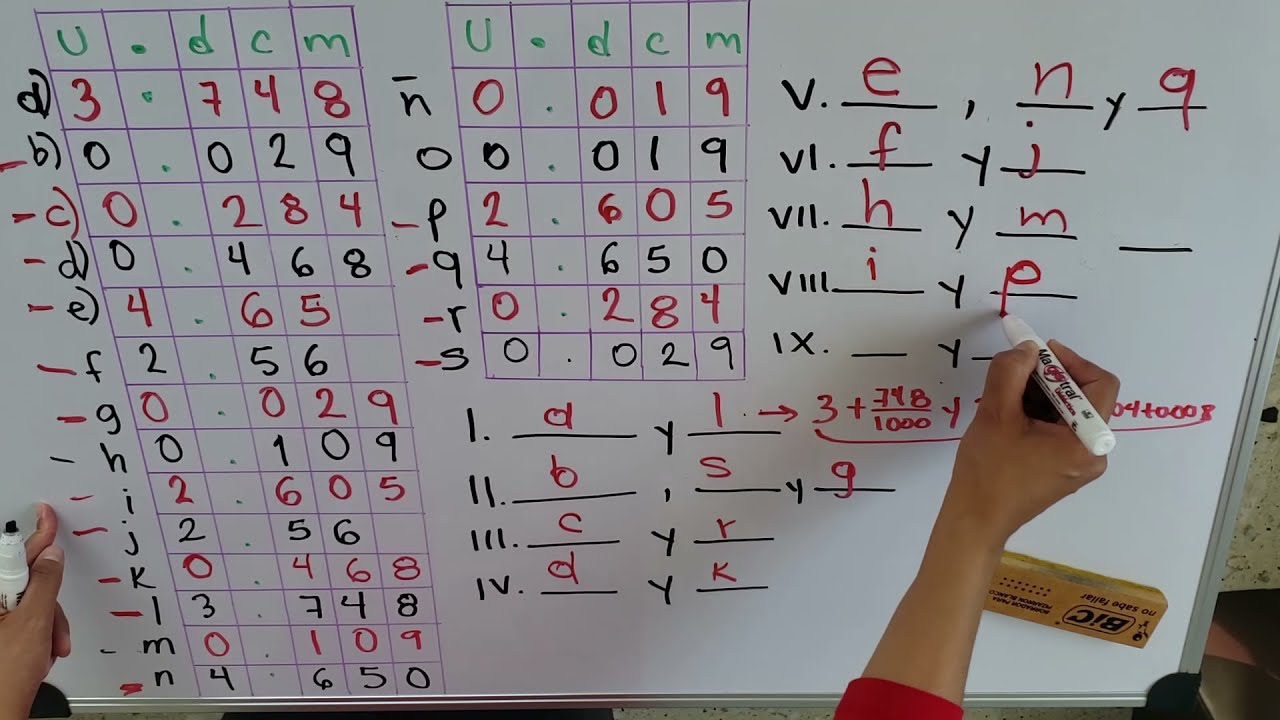 U . d c m
a) 3 . 7 4 8
- b) 0 . 0 2 9
- c) 0 . 2 8 4
- d) 0 . 4 6 8
- e) 4 . 6 5
- f 2 . 5 6
- g 0 . 0 2 9
- h 0 . 1 0 9
- i 2 . 6 0 5
- j 2 . 5 6
- k 0 . 4 6 8
- l 3 . 7 4 8
- m 0 . 1 0 9
- n 4 . 6 5 0
U . d c m
ñ 0 . 0 1 9
o 0 . 0 1 9
- p 2 . 6 0 5
- q 4 . 6 5 0
- r 0 . 2 8 4
- s 0 . 0 2 9
I. a y l. → 3 + 748/1000 y
04+0008
II. b , s y g
III. c y r
IV. d y k
V. e , n y q
VI. f y j
VII. h y m
VIII. i y p
IX. __ y
Magistral
BORRADOR PARA
PIZARRON BLANCO
BIC
no sabe fallar